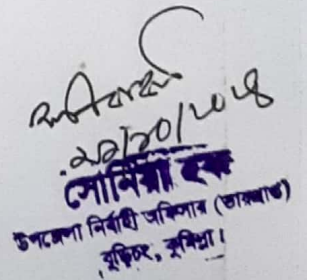 ২২/১০/২০২৪
সোনিয়া হক
উপজেলা নির্বাহী অফিসার (ভারপ্রাপ্ত)
বুড়িচং, কুমিল্লা।